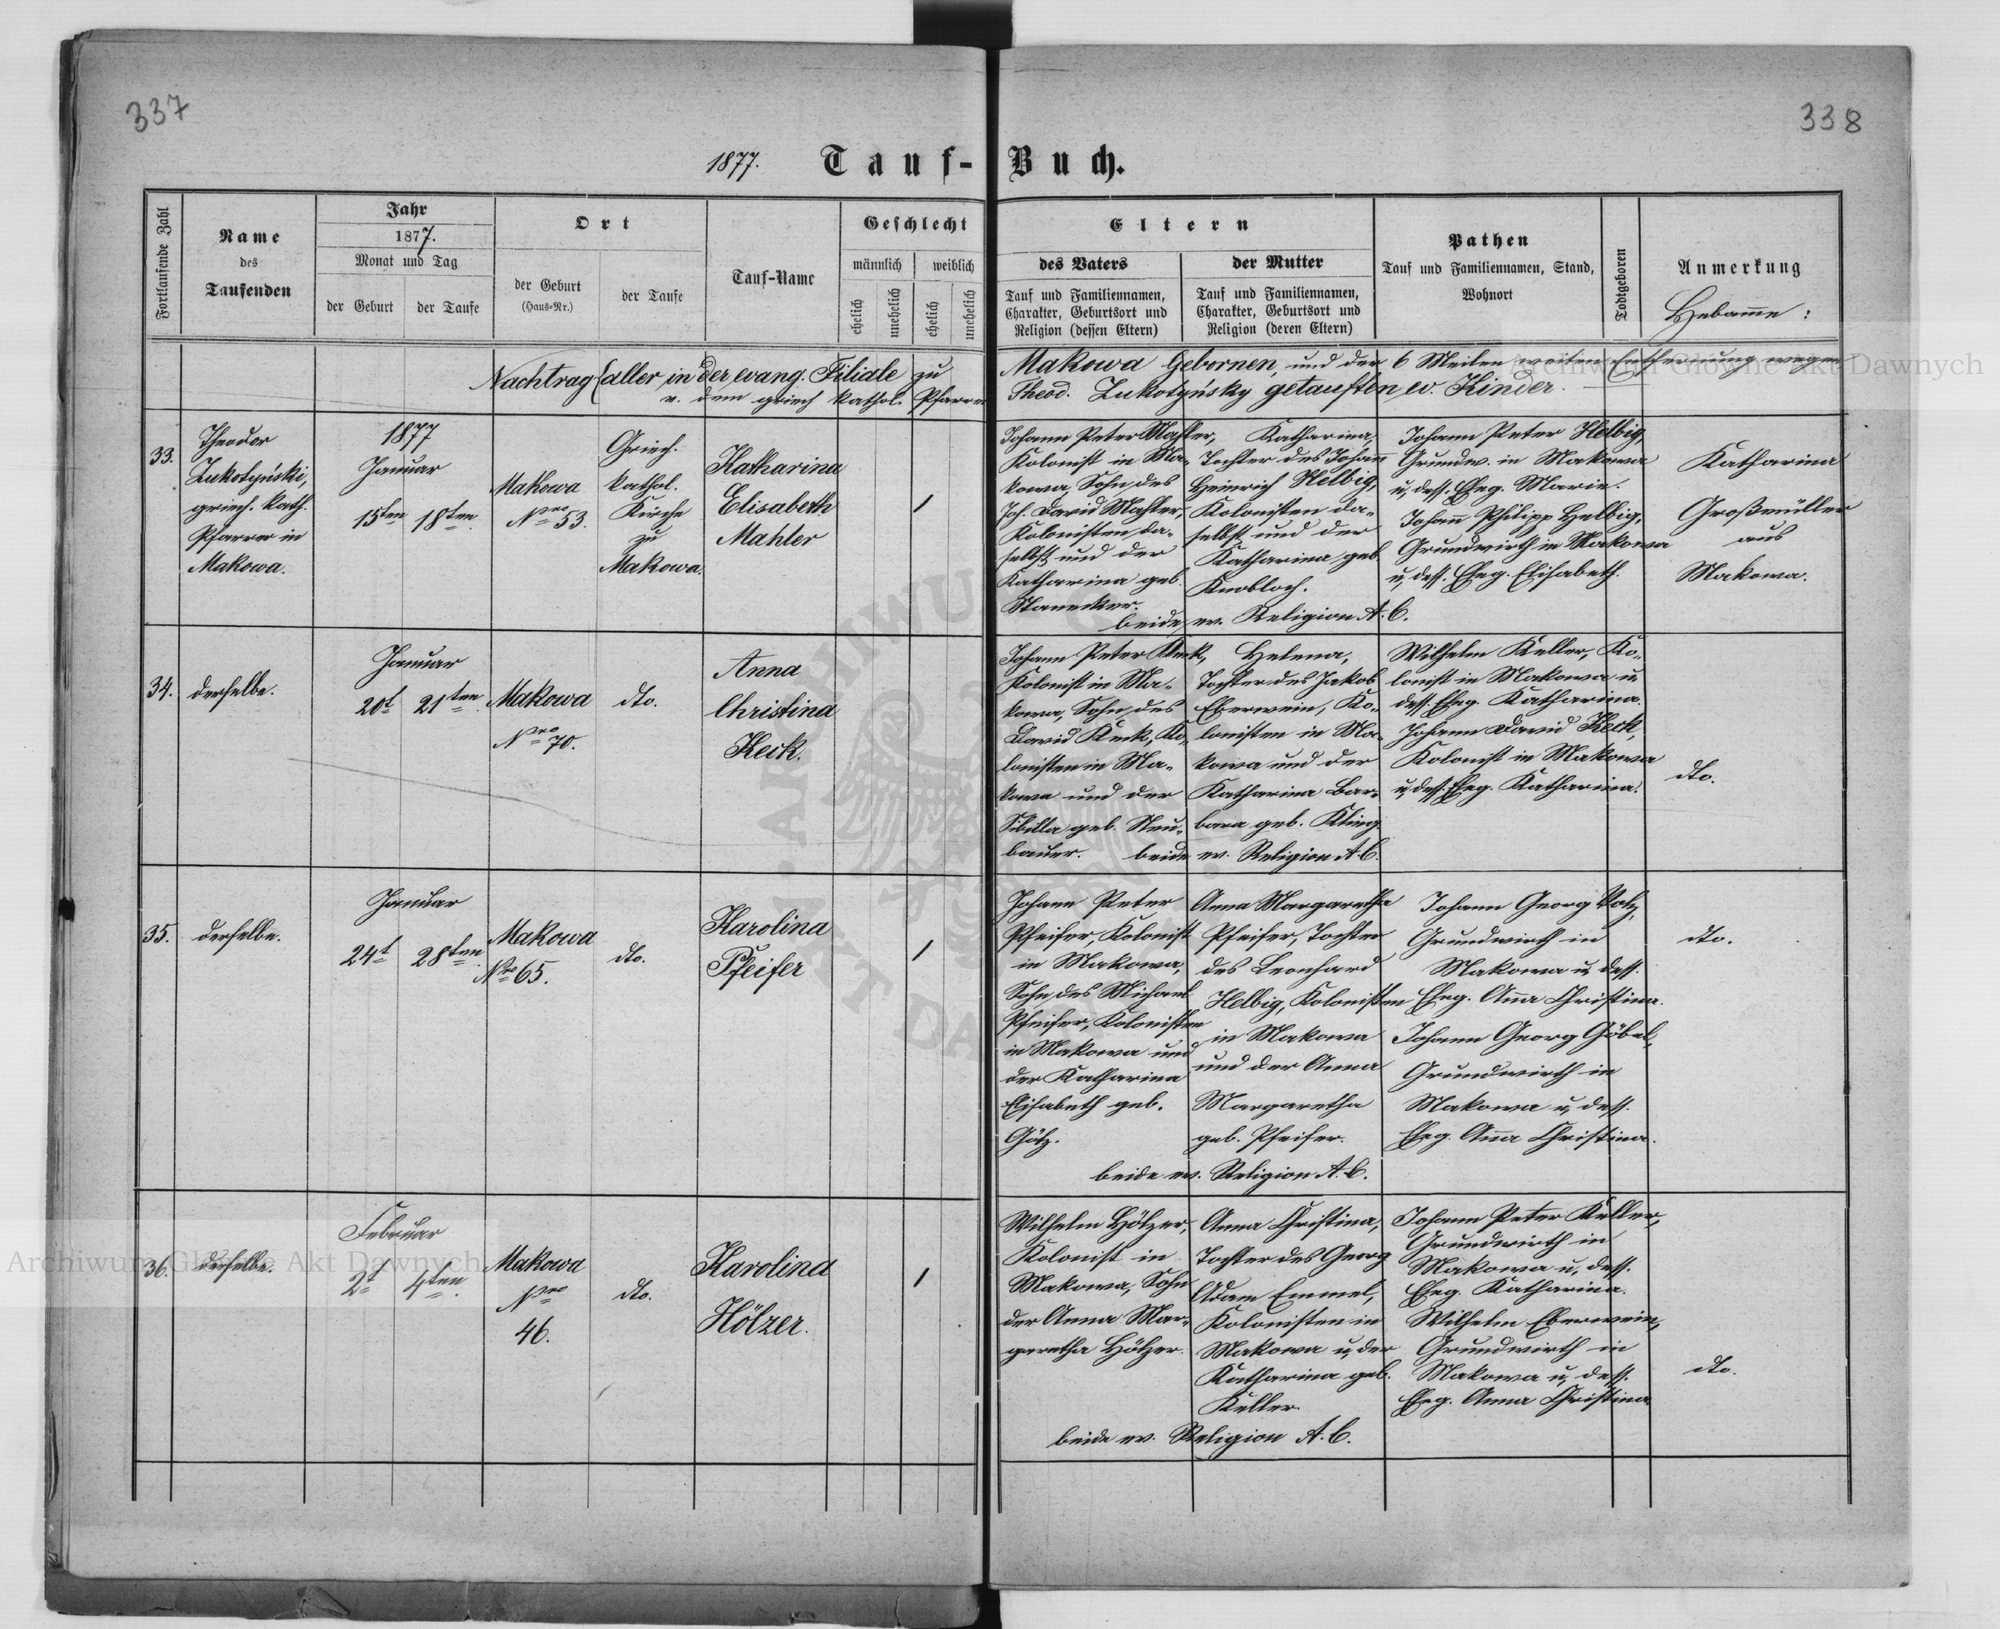 337
338
1877. Tauf-Buch.
Fortlaufende Zahl
Name
des
Taufenden
Jahr
1877.
Monat und Tag
der Geburt
der Taufe
Ort
der Geburt
(Haus=Nr.)
der Taufe
Tauf=Name
Geschlecht
männlich
weiblich
ehelich
unehelich
ehelich
unehelich
Eltern
des Vaters
der Mutter
Tauf und Familiennamen,
Charakter, Geburtsort und
Religion (dessen Eltern)
Tauf und Familiennamen,
Charakter, Geburtsort und
Religion (deren Eltern)
Pathen
Tauf und Familiennamen, Stand,
Wohnort
Todtgeboren
Anmerkung
Hebamme:
Nachtrag (aller in der evang. Filiale zu Makowa Gebornen, und der 6 Meilen weiten Entfernung wegen
v. dem griech kathol. Pfarrer Theod. Zukotyńsky getauften ev. Kinder.
33.
Theodor
Zukotyński,
griech. kath.
Pfarrer in
Makowa.
1877
Januar
15ten
18ten
Makowa
Nro 53.
Griech.
kathol.
Kirche
zu
Makowa.
Katharina
Elisabeth
Mahler
Johann Peter Mahler,
Kolonist in Ma-
kowa, Sohn des
Joh. David Mahler,
Kolonisten da-
selbst und der
Katharina geb.
Katharina,
Tochter des Johann
Heinrich Helbig,
Kolonisten da-
selbst und der
Katharina geb.
Knobloch.
beide ev. Religion A. C.
Johann Peter Helbig,
Grundw. in Makowa
u. dess. Eheg. Marie.
Johann Philipp Helbig,
Grundwirth in Makowa
u. dess. Eheg. Elisabeth.
Katharina
Großmüller
aus
Makowa.
34.
derselbe.
Januar
20t
21ten
Makowa
Nro 70.
dto.
Anna
Christina
Keck.
Johann Peter Keck,
Kolonist in Ma-
kowa, Sohn des
David Keck, Ko-
lonisten in Ma-
kowa und der
Sibilla geb. Neu-
bauer.
Helena,
Tochter des Jakob
Eberwein, Ko-
lonisten in Ma-
kowa und der
Katharina Bar-
bara geb. Kling.
beide ev. Religion A. C.
Wilhelm Keller, Ko-
lonist in Makowa u.
dess. Eheg. Katharina.
Johann David Keck,
Kolonist in Makowa
u. dess. Eheg. Katharina.
dto.
35.
derselbe.
Januar
24t
28ten
Makowa
Nro 65.
dto.
Karolina
Pfeifer
Johann Peter
Pfeifer, Kolonist
in Makowa,
Sohn des Michael
Pfeifer, Kolonisten
in Makowa und
der Katharina
Elisabeth geb.
Götz.
Anna Margaretha
Pfeifer, Tochter
des Leonhard
Helbig, Kolonisten
in Makowa
und der Anna
Margaretha
geb. Pfeifer.
beide ev. Religion A. C.
Johann Georg Volz,
Grundwirth in
Makowa u. dess.
Eheg. Anna Christina.
Johann Georg Göbel,
Grundwirth in
Makowa u. dess.
Eheg. Anna Christina.
dto.
36.
derselbe.
Februar
2t
4ten
Makowa
Nro
46.
dto.
Karolina
Hölzer.
Wilhelm Hölzer,
Kolonist in
Makowa, Sohn
der Anna Mar-
garetha Hölzer.
Anna Christina,
Tochter des Georg
Adam Emmel,
Kolonisten in
Makowa u. der
Katharina geb.
Keller.
beide ev. Religion A. C.
Johann Peter Keller,
Grundwirth in
Makowa u. dess.
Eheg. Katharina.
Wilhelm Eberwein,
Grundwirth in
Makowa u. dess.
Eheg. Anna Christina
dto.
Archiwum Główne Akt Dawnych
Archiwum Główne Akt Dawnych